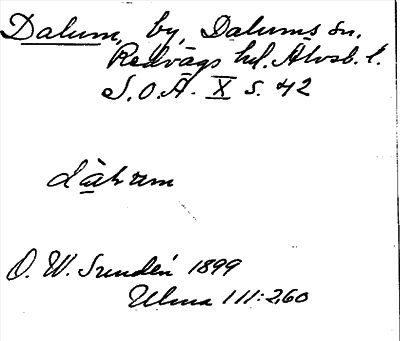 Dalum, by, Dalums sn.
Redvägs hd. Älvsb. l.
S.O.Ä. X s. 42
O. W. Sundén 1899
Ulma 111:260